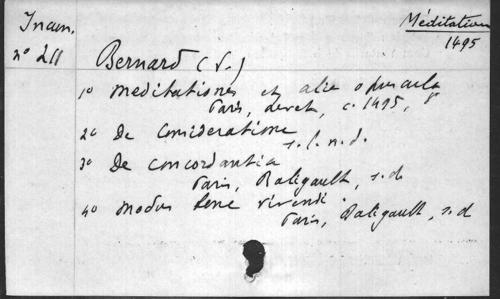 Incun.
n° 211
Méditation
1495
Bernard (S.)
1° meditationes et alie opuscula
Paris, c. 1495,
2° De Consideratione
s.l.n.d.
3° De concordantia
Paris, Baligault, s.d.
4° modus bene vivendi
Paris, Baligault, s.d